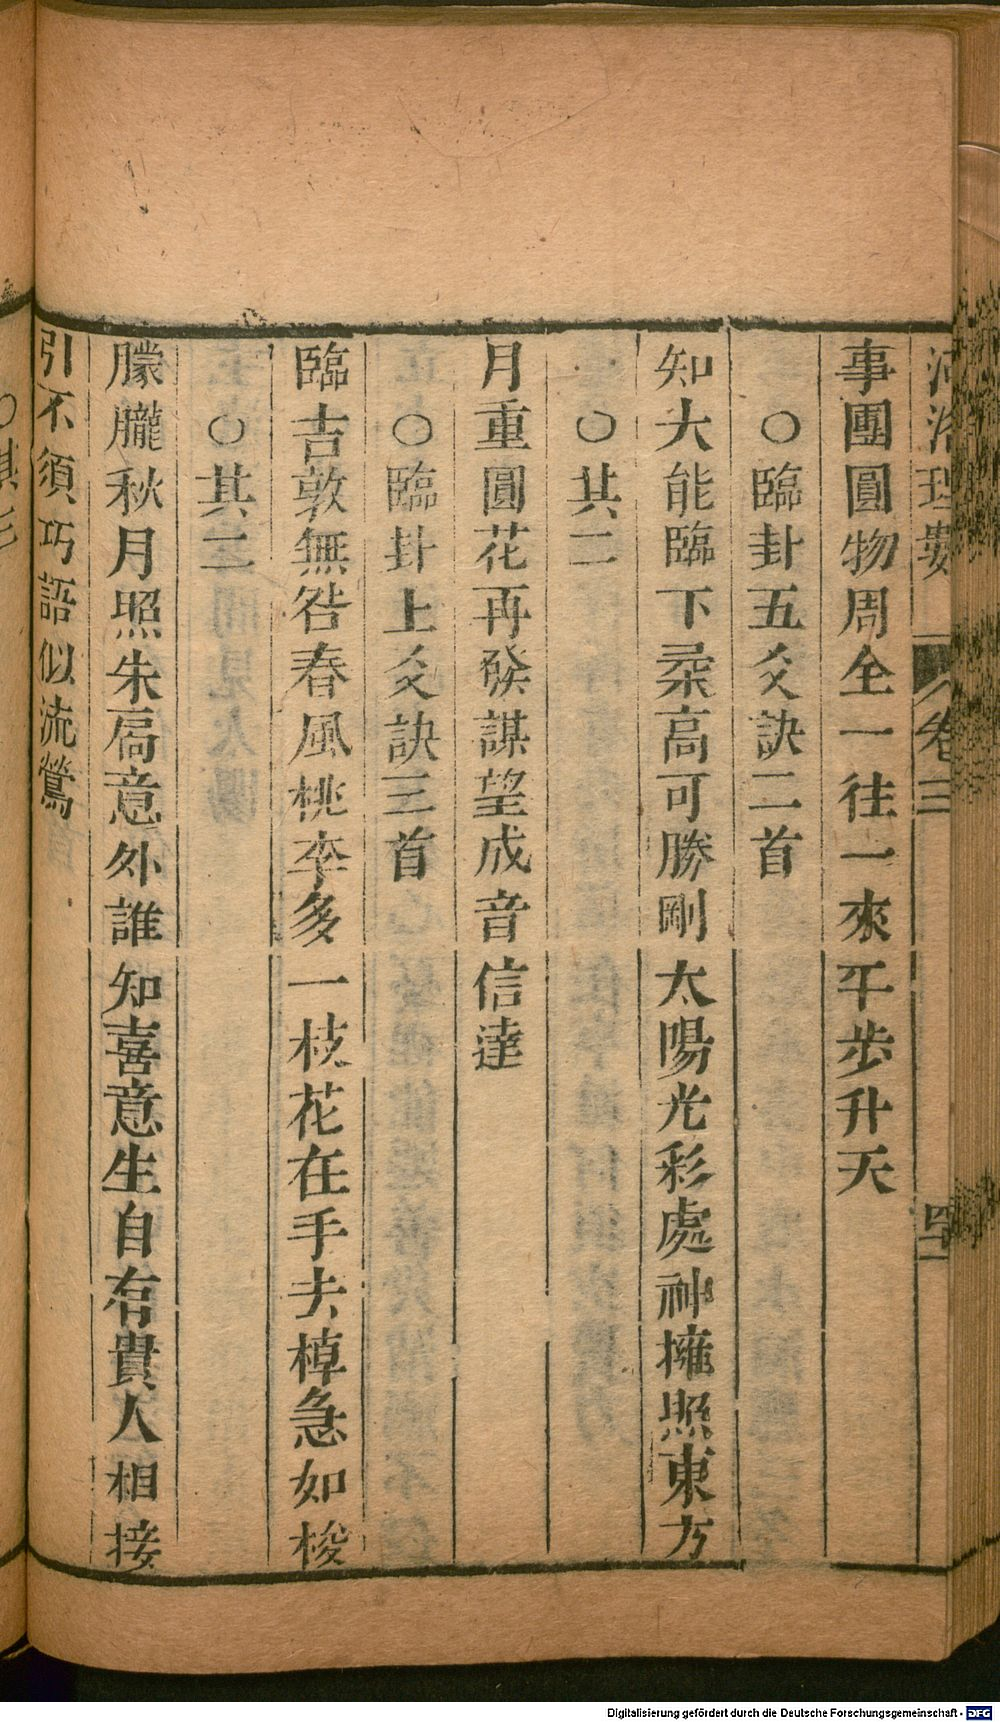 河洛理數 卷三 四一
事團圓物周全一往一來平步升天
○臨卦五爻訣二首
知大能臨下柔高可勝剛太陽光彩處神擁照東方
○其二
月重圓花再發謀望成音信達
○臨卦上爻訣三首
臨吉敦無咎春風桃李多一枝花在手夫棹急如梭
○其二
朦朧秋月照朱扃意外誰知喜意生自有貴人相接
引不須巧語似流鶯
○其
Digitalisierung gefördert durch die Deutsche Forschungsgemeinschaft - DFG